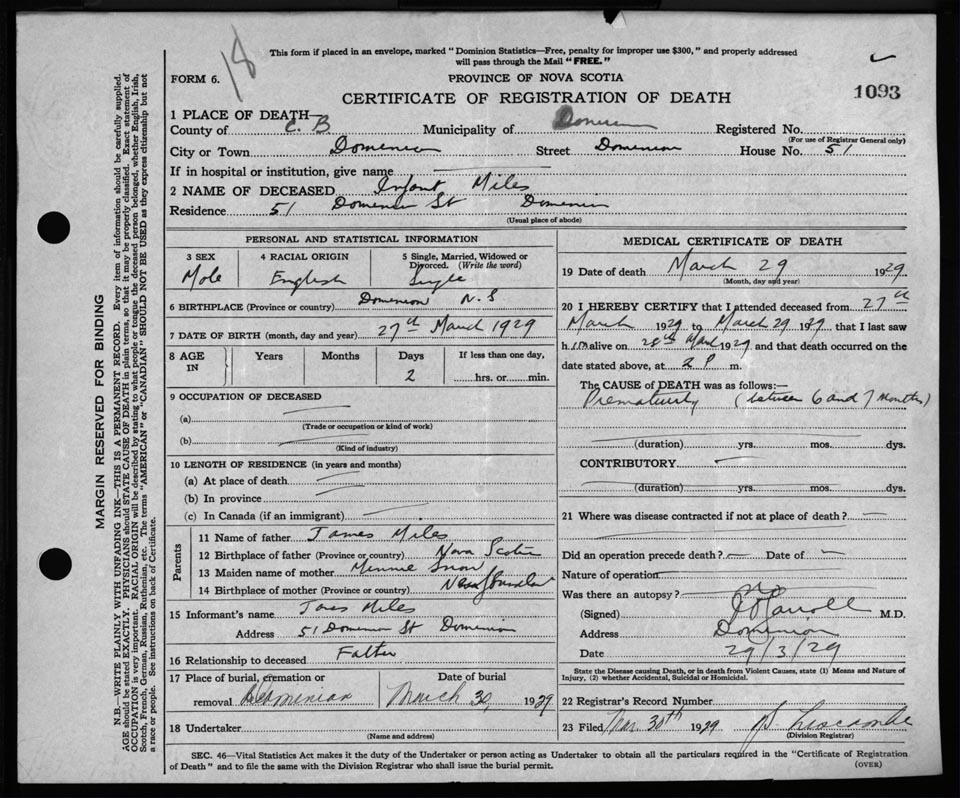 18
This form if placed in an envelope, marked "Dominion Statistics—Free, penalty for improper use $300," and properly addressed
will pass through the Mail "FREE."
FORM 6.
PROVINCE OF NOVA SCOTIA
CERTIFICATE OF REGISTRATION OF DEATH
1093
1 PLACE OF DEATH—
County of C. B Municipality of Registered No.
(For use of Registrar General only)
City or Town Street Dominion House No. 51
If in hospital or institution, give name
2 NAME OF DECEASED Infant Miles
Residence 51 St
(Usual place of abode)
PERSONAL AND STATISTICAL INFORMATION
3 SEX 4 RACIAL ORIGIN 5 Single, Married, Widowed or
Divorced. (Write the word)
Male English Single
6 BIRTHPLACE (Province or country) Dominion N.S
7 DATE OF BIRTH (month, day and year) 27th March 1929
8 AGE IN Years Months Days If less than one day,
2 hrs. or min.
9 OCCUPATION OF DECEASED
(a)
(Trade or occupation or kind of work)
(b)
(Kind of industry)
10 LENGTH OF RESIDENCE (in years and months)
(a) At place of death
(b) In province
(c) In Canada (if an immigrant)
Parents
11 Name of father James Miles
12 Birthplace of father (Province or country) Nova Scotia
13 Maiden name of mother Minnie Snow
14 Birthplace of mother (Province or country)
15 Informant's name Miles
Address 51 St Dominion
16 Relationship to deceased Father
17 Place of burial, cremation or Date of burial
removal Dominion March 30, 1929
18 Undertaker
(Name and address)
MEDICAL CERTIFICATE OF DEATH
19 Date of death March 29 1929
(Month, day and year)
20 I HEREBY CERTIFY that I attended deceased from 27th
March 1929 to March 29 1929 that I last saw
h.im alive on 28th March 1929 and that death occurred on the
date stated above, at 2 P m.
The CAUSE OF DEATH was as follows:—
Prematurity (between 6 and 7 months)
(duration) yrs. mos. dys.
CONTRIBUTORY
(duration) yrs. mos. dys.
21 Where was disease contracted if not at place of death?
Did an operation precede death? Date of
Nature of operation
Was there an autopsy? no
(Signed) M.D.
Address Dominion
Date 29/3/29
State the Disease causing Death, or in death from Violent Causes, state (1) Means and Nature of
Injury, (2) whether Accidental, Suicidal or Homicidal.
22 Registrar's Record Number
23 Filed Mar 30th 1929
(Division Registrar)
SEC. 46—Vital Statistics Act makes it the duty of the Undertaker or person acting as Undertaker to obtain all the particulars required in the "Certificate of Registration
of Death" and to file the same with the Division Registrar who shall issue the burial permit.
(OVER)
MARGIN RESERVED FOR BINDING
N.B.—WRITE PLAINLY WITH UNFADING INK—THIS IS A PERMANENT RECORD. Every item of information should be carefully supplied.
AGE should be stated EXACTLY. PHYSICIANS should STATE CAUSE OF DEATH in plain terms, so that it may be properly classified. Exact statement of
OCCUPATION is every important. RACIAL ORIGIN will be described by stating to what people or tongue the deceased person belonged, whether English, Irish,
Scotch, French, German, Russian, Ruthenian, etc. The terms "AMERICAN" or "CANADIAN" SHOULD NOT BE USED as they express citizenship but not
a race or people. See instructions on back of Certificate.